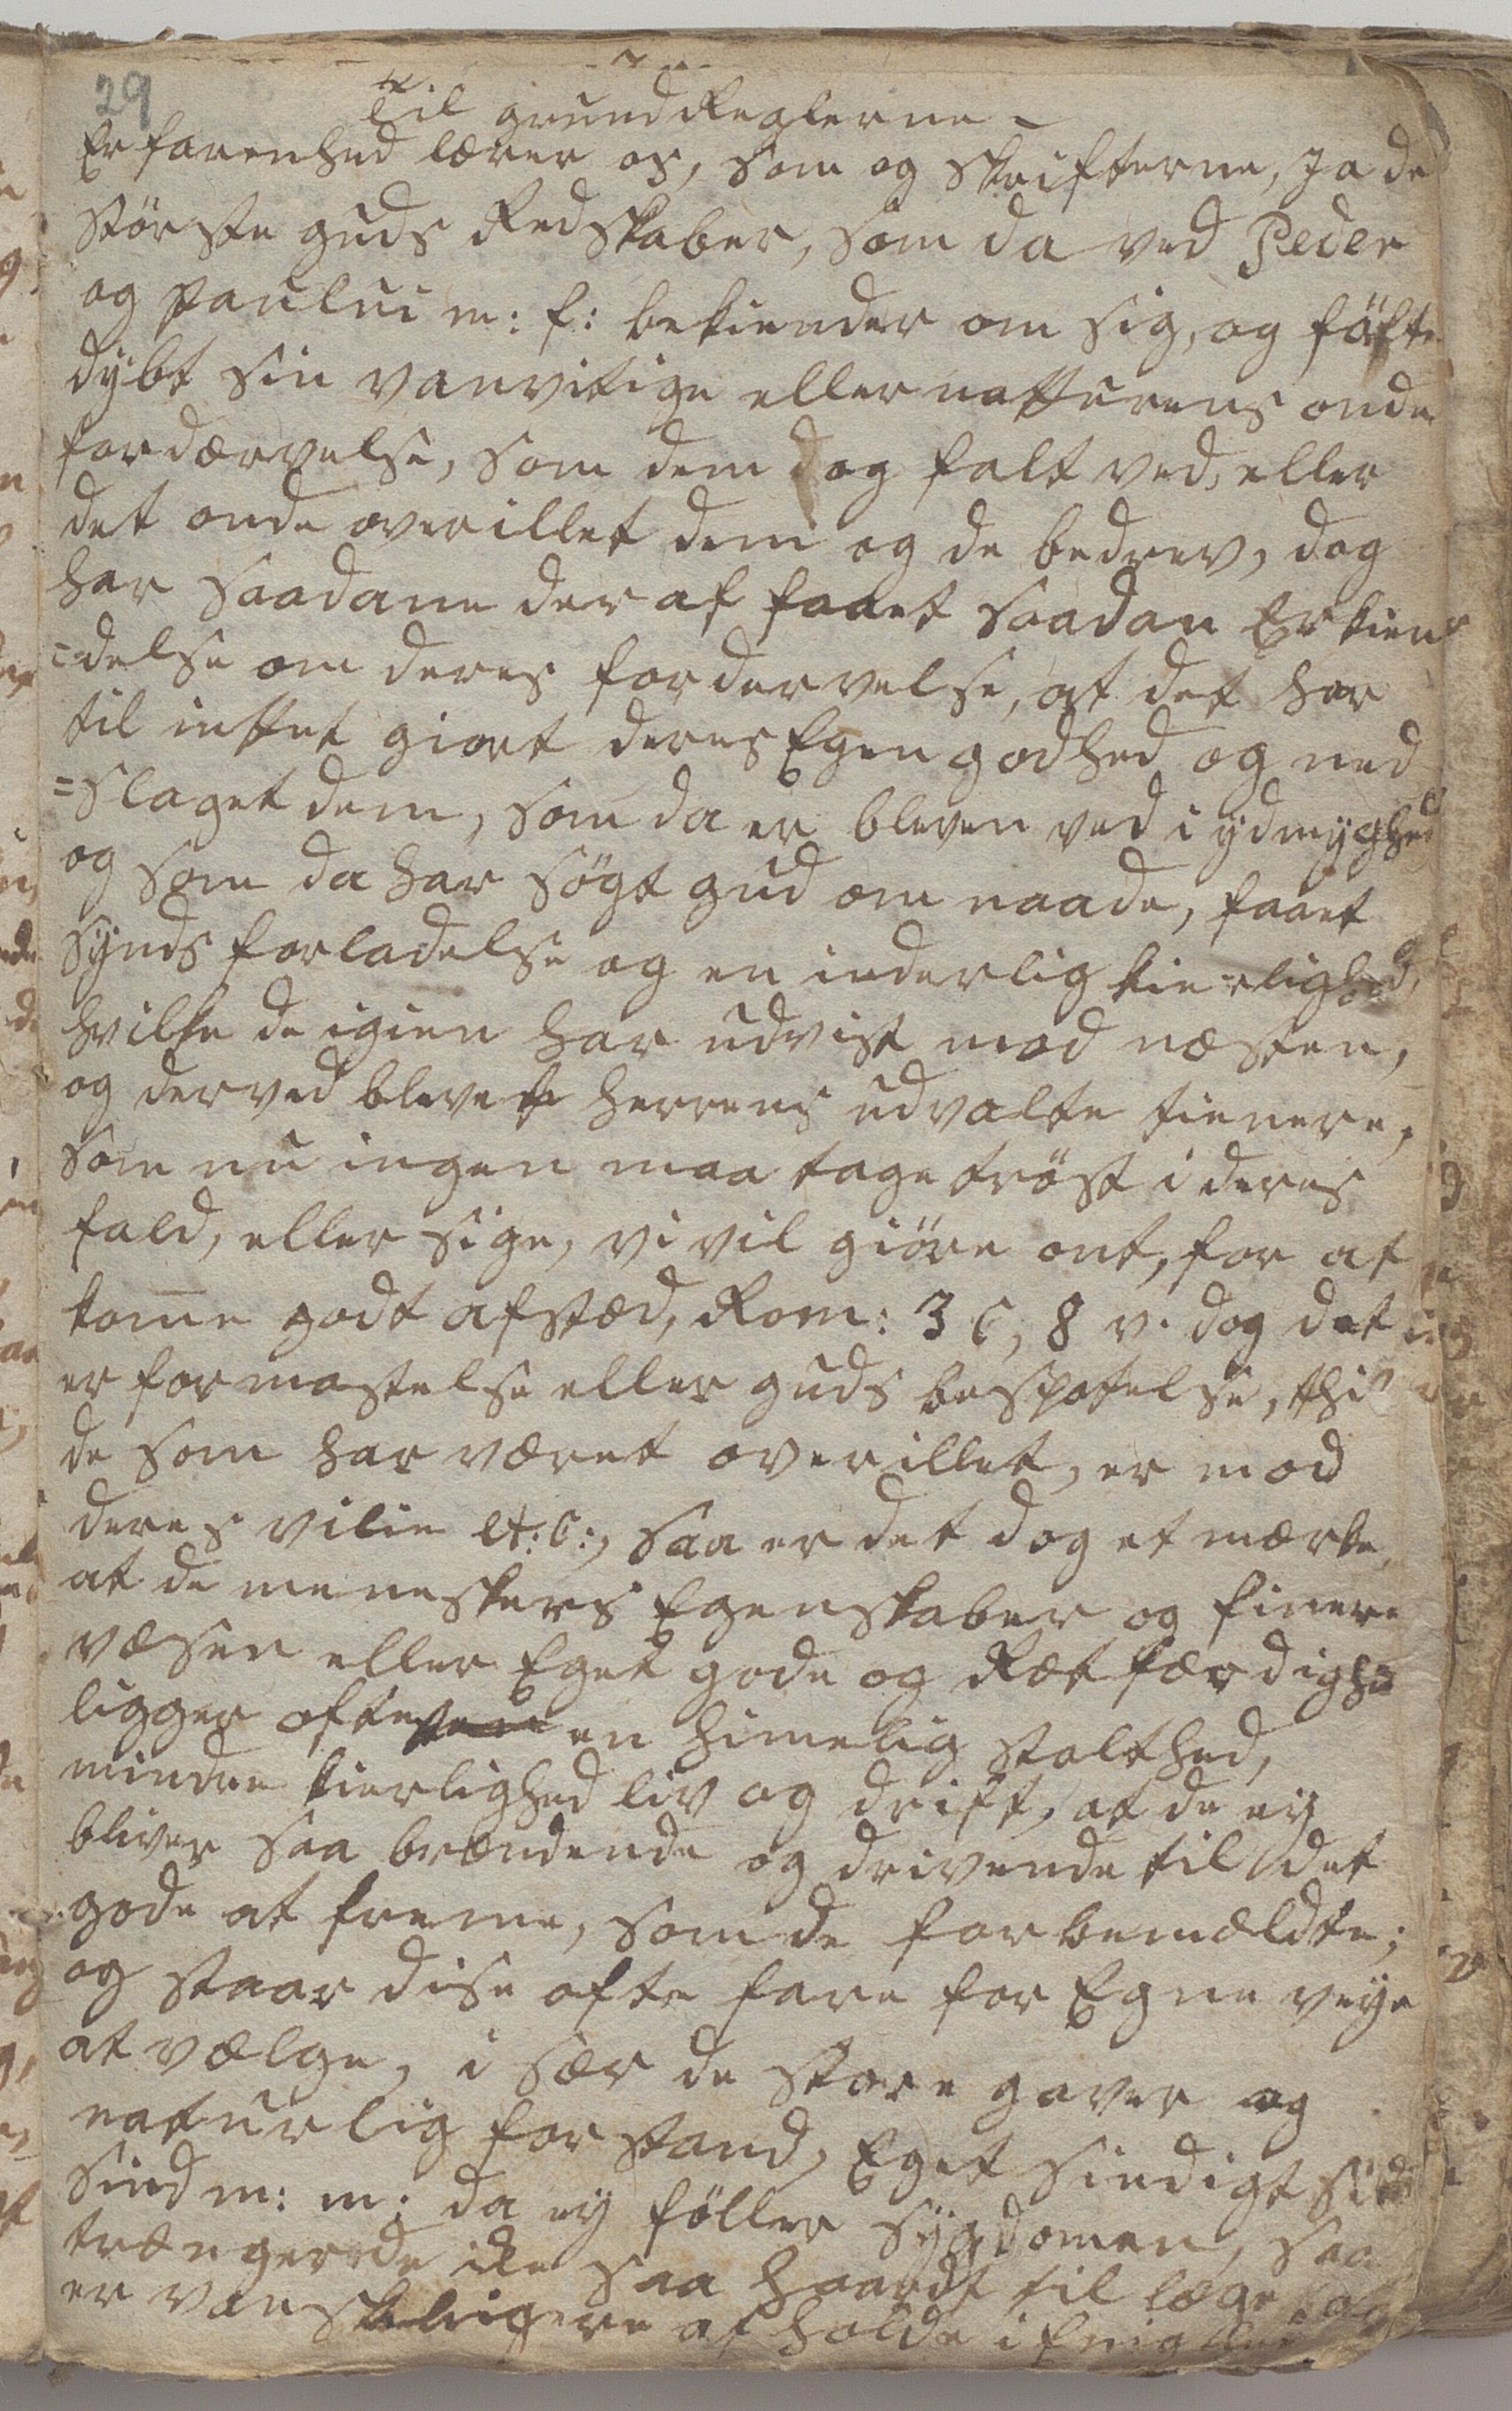 29
til grundReglerne
Erfarenhed lærer os, som og skrifterne, Ja de
störste guds Redskaber, som da ved Peder
og Paulus m: f: bekiender om sig, og föhlte
dybt sin vanvitige eller natturens onde
fordærvelse, som dem dog falt ved, eller
det onde overillet dem og de bedrev, dog
har saadane der af faaet saadan Erkien
=delse om deres fordervelse, at det har
til inttet giort deres Egen godhed og ned
=slaget dem, som da er bleven ved i ydmyghed
og som da har sögt gud om naade, faaet
synds forladelse og en inderlig kierlighed,
hvilke de igien har udvist mod næsten,
og derved blevet herrens udvalte tienere,
som nu ingen maa tage tröst i deres
fald, eller sige, vi vil giöre ont, for at
kome godt afstæd, Rom: 3 c, 8 v. dog det
er formastelse eller guds bespotelse, thi
de som har været overillet, er mod
deres vilie et:c:, saa er det dog et mærke,
at de meneskers Egenskaber og finere
væsen eller Eget gode og Rætfærdighed
ligger ofte en himelig stolthed,
mindre kierlighed liv og drift, at de ey
bliver saa brændende og drivende til det
gode at freme, som de forbemældte;
og staar dise ofte fare for Egne veye
at vælge, i sær de store gaver og
naturlig forstand, Eget sindigt
sind m: m: da ey föller sygdomen, saa
trænger de ike saa haardt til læge
er vanskeligere at holde i